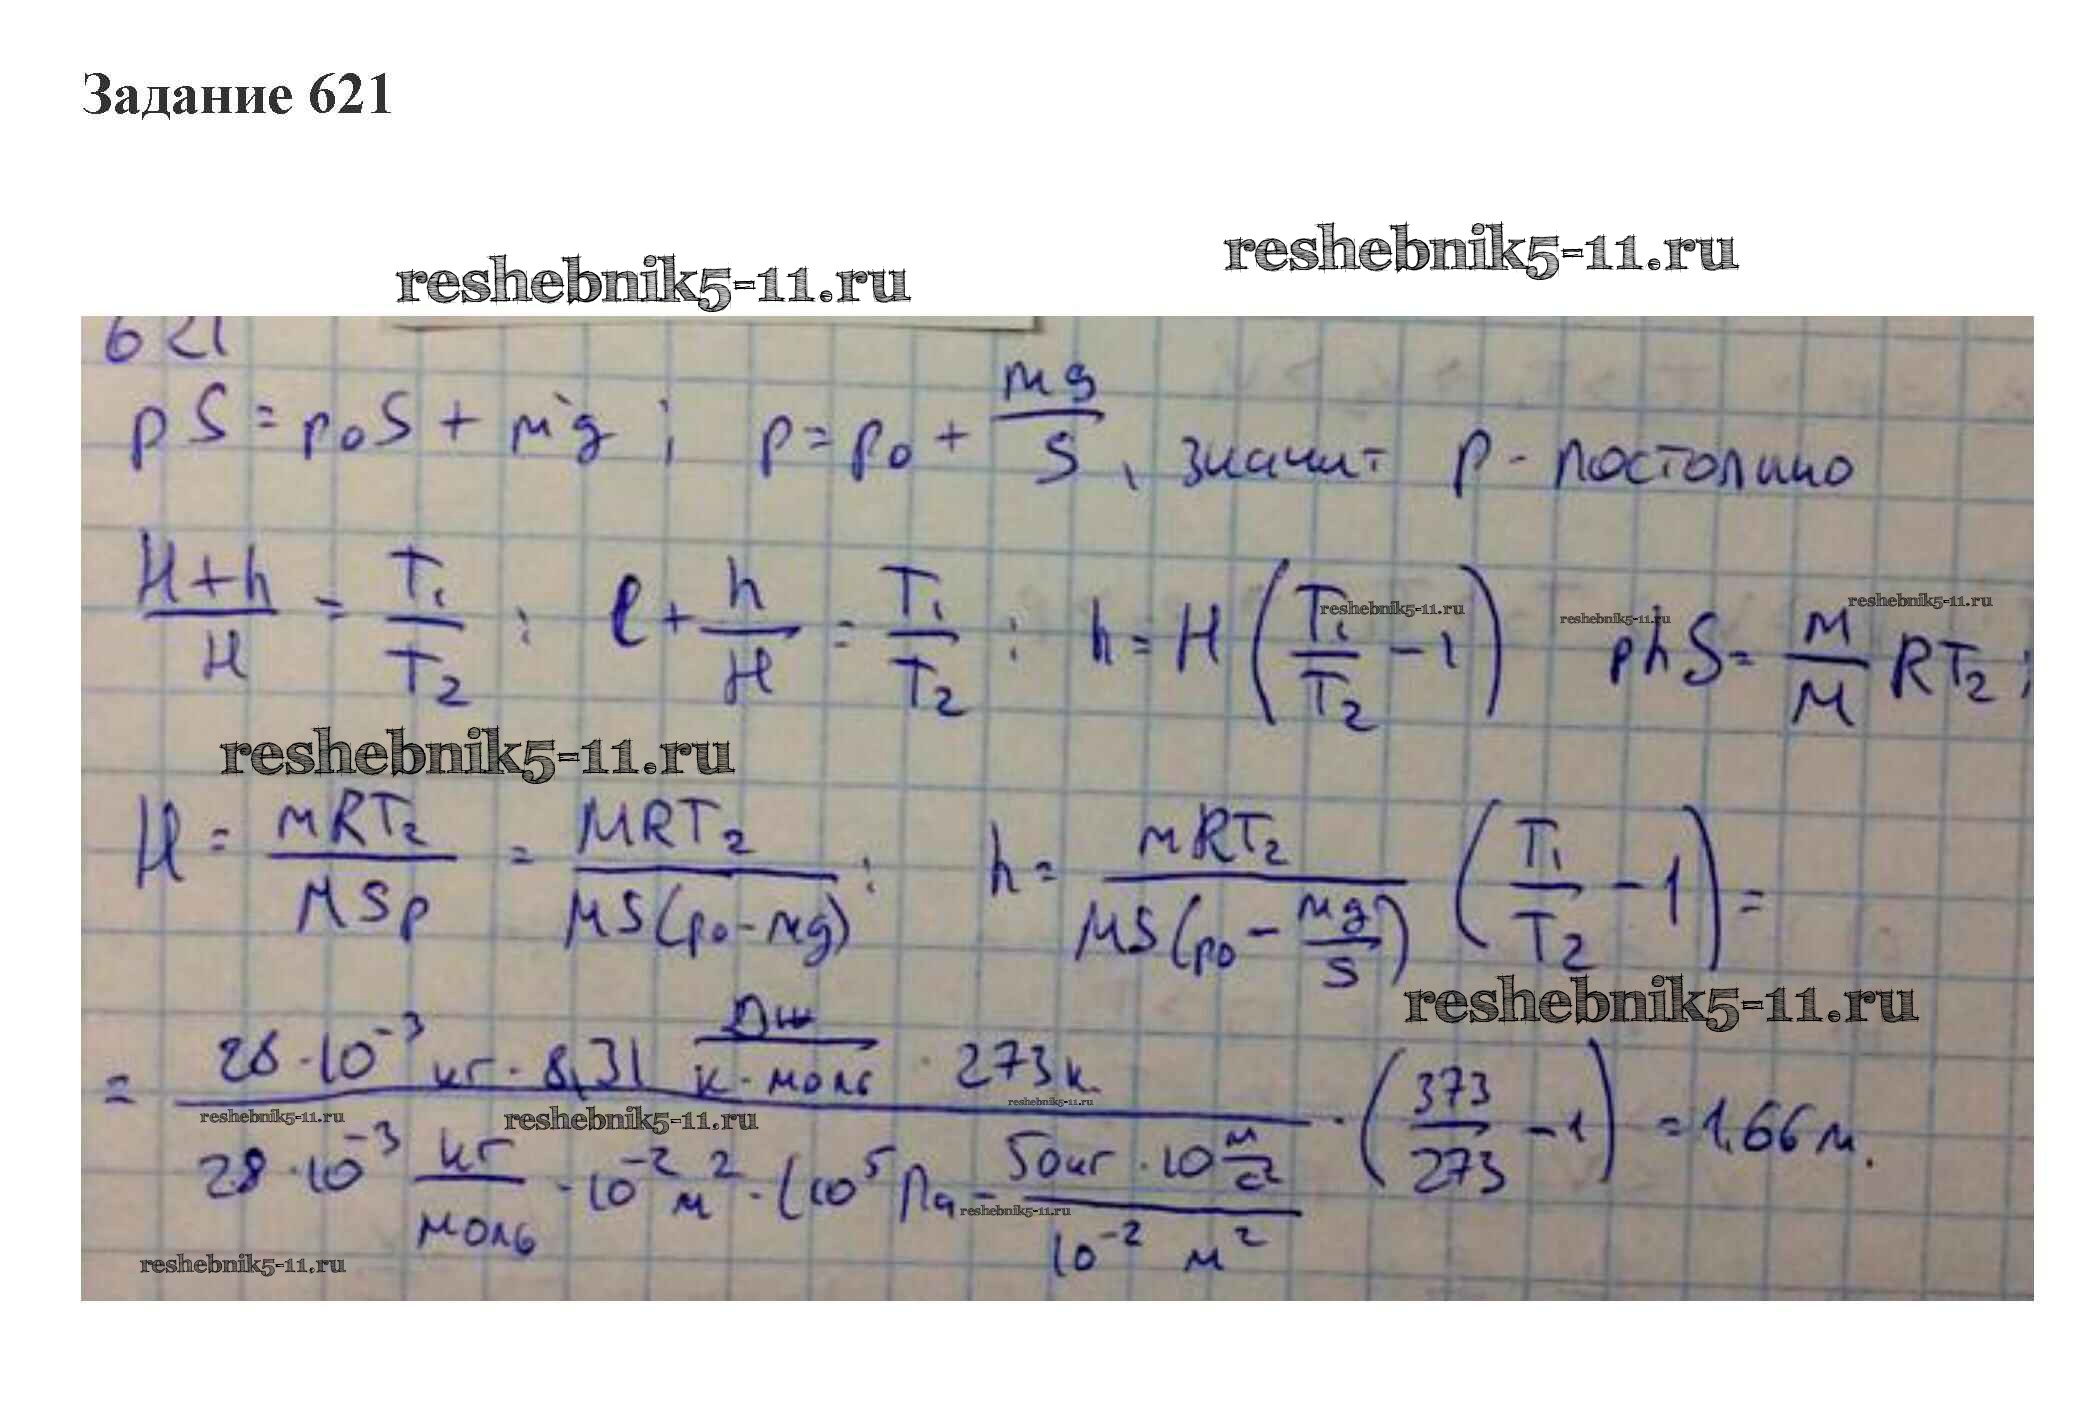 Задание 621
reshebnik5-11.ru
reshebnik5-11.ru
621
pS = p₀S + mg ; p = p₀ + mg/S , значит p - постоянно
(H+h)/H = T₁/T₂ ; l + h/H = T₁/T₂ ; h = H (T₁/T₂ - 1) phS = м/М RT₂ ;
reshebnik5-11.ru
reshebnik5-11.ru
reshebnik5-11.ru
reshebnik5-11.ru
H = мRT₂/МSp = МRT₂/МS(p₀-мg) ; h = мRT₂/МS(p₀ - мg/S) (T₁/T₂ - 1) =
reshebnik5-11.ru
= 28·10⁻³ кг · 8,31 Дж/К·моль · 273 К / 28·10⁻³ кг/моль · 10⁻² м² · (10⁵ Па - 50 кг · 10 м/с² / 10⁻² м²) · (373/273 - 1) = 1,66 м.
reshebnik5-11.ru
reshebnik5-11.ru
reshebnik5-11.ru
reshebnik5-11.ru
reshebnik5-11.ru